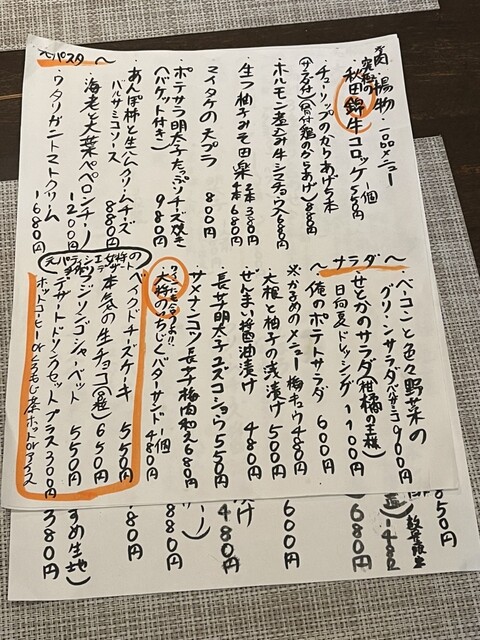 肉・揚物 一品メニュー
究極の
秋田錦牛コロッケ一個550円
・チューリップのからあげ5本
(サラダ付)(骨付鶏のからあげ)880円
・ホルモン煮込み牛シマチョウ入680円
・生つ柚子みそ田楽 2本380円
4本680円
・マイタケの天プラ 800円
・ポテサラ明太子たっぷりチーズ焼き
(バケット付き) 980円
・あんぽ柿と生ハムクリームチーズ
バルサミコソース 880円
〜パスタ〜
・海老と大葉ペペロンチーノ
1200円
・ワタリガニトマトクリーム
1680円
〜サラダ〜
・ベーコンと色々野菜の
グリーンサラダ 900円
・せとかのサラダ(柑橘の王様)
日向夏ドレッシング 1100円
・俺のポテトサラダ 600円
※かるめのメニュー 梅キュウ480円
・大根と柚子の浅漬け 500円
・ぜんまい醤油漬け 480円
・長芋明太子ユズコショウ 550円
・サメナンコツ長芋梅肉和え680円
大将のいちじくバターサンド一個
480円
・ベイクドチーズケーキ 550円
・本気の生チョコ(8種) 650円
・ジンジンゴシャーベット 550円
デザートドリンクセットプラス300円
ホットコーヒーorくろもじ茶ホットorアイス
850円
数量限定
1480
680円
600円
漬け
480円
880円
80円
380円